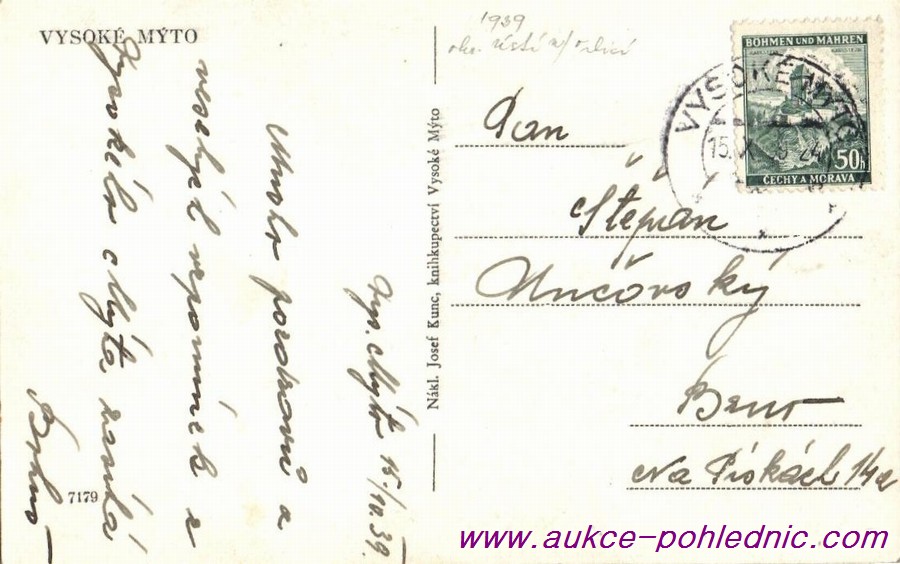 VYSOKÉ MÝTO
1939
okr. Ústí n/ Orlicí
BÖHMEN UND MÄHREN
50h
ČECHY A MORAVA
VYSOKÉ MÝTO
15. X.
Pan
Štěpán
Brno
Na Pískách 14a
Nákl. Josef Kunc, knihkupectví Vysoké Mýto
Vys. Mýto 15/10.39.
Mnoho pozdravů a
veselých vzpomínek z
Vysokého Mýta zasílá
7179
www.aukce-pohlednic.com